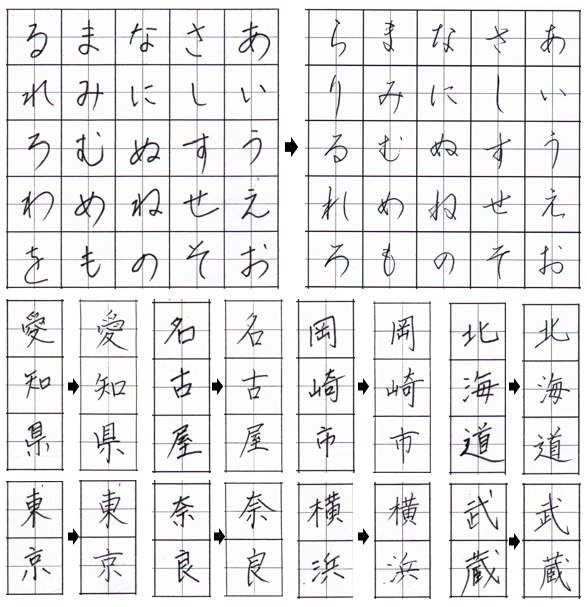 あいうえお
さしすせそ
なにぬねの
まみむめも
るれろわを
あいうえお
さしすせそ
なにぬねの
まみむめも
らりるれろ
愛知県
愛知県
名古屋
名古屋
岡崎市
岡崎市
北海道
北海道
東京
東京
奈良
奈良
横浜
横浜
武蔵
武蔵